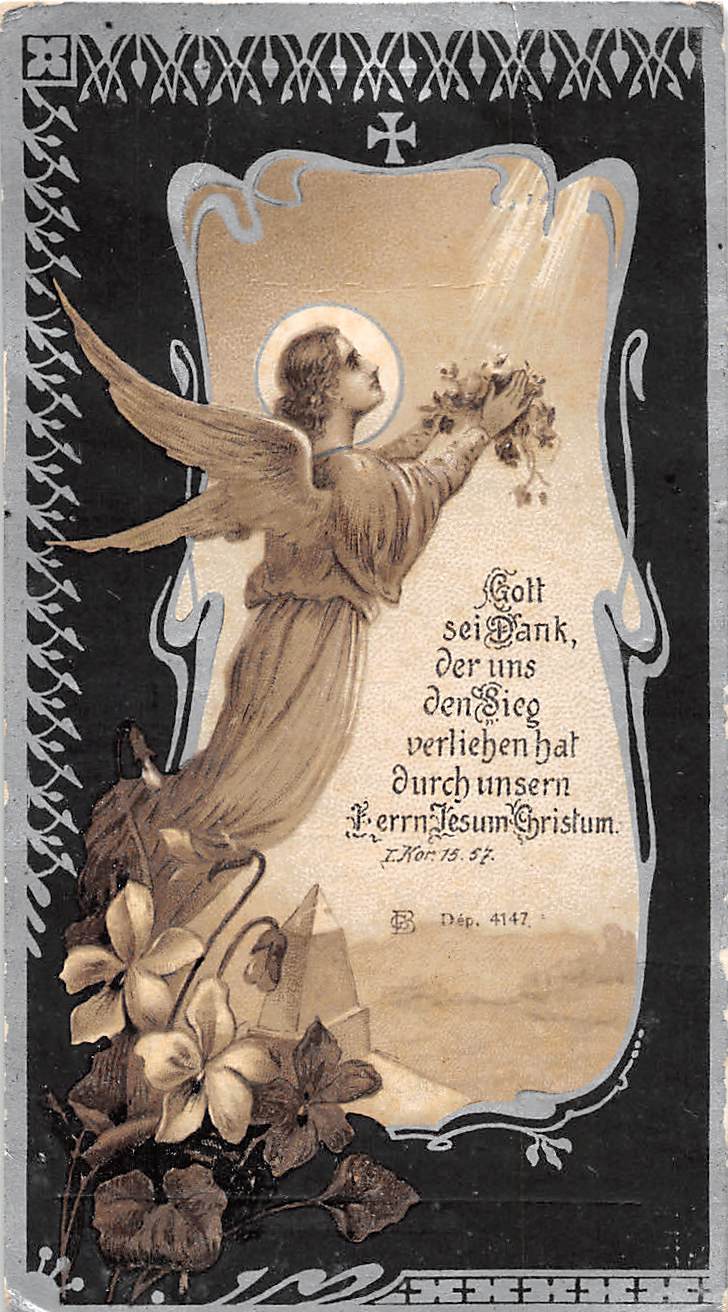 Gott
sei Dank,
der uns
den Sieg
verliehen hat
durch unsern
Herrn Jesum Christum.
I. Kor. 15. 57.
CB Dép. 4147.